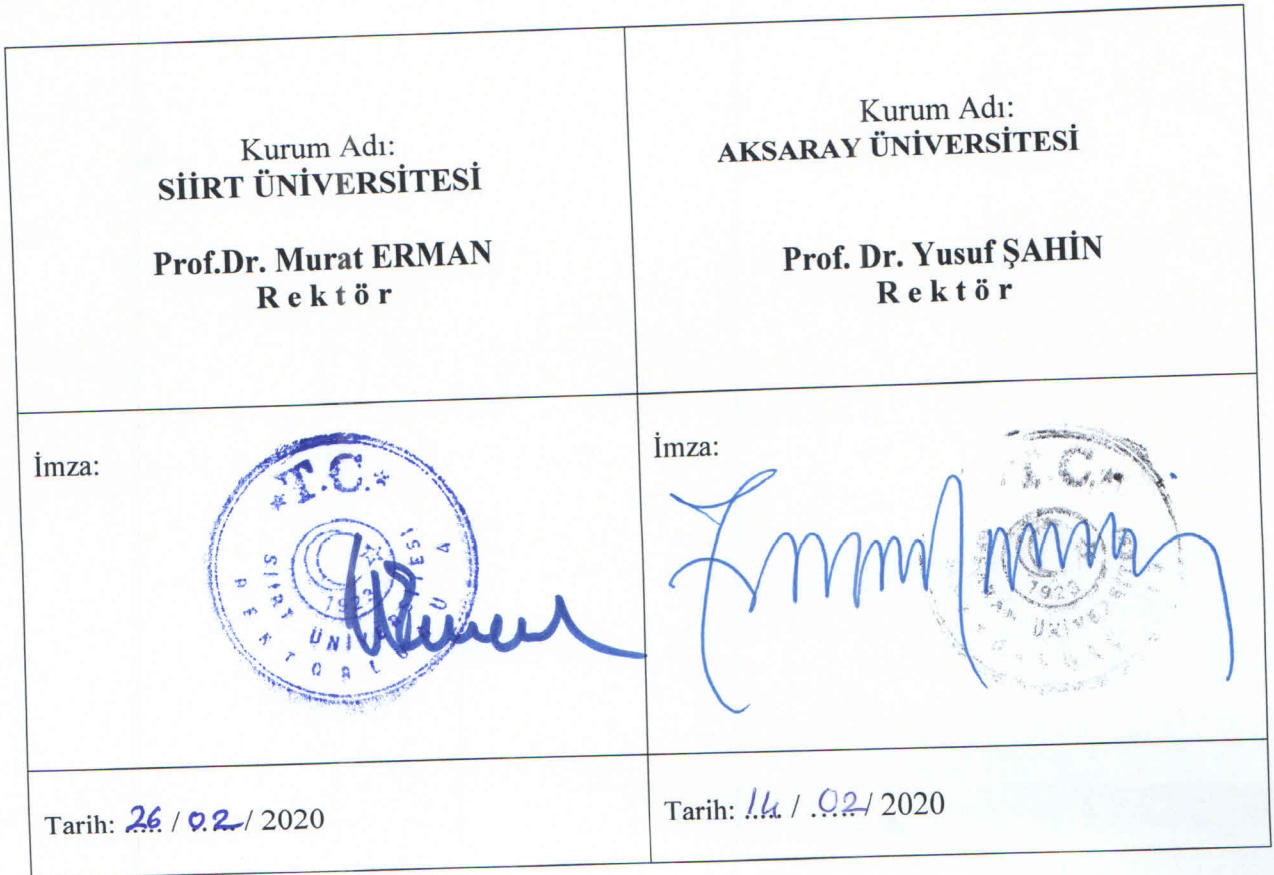 Kurum Adı:
SİİRT ÜNİVERSİTESİ
Prof.Dr. Murat ERMAN
Rektör
Kurum Adı:
AKSARAY ÜNİVERSİTESİ
Prof. Dr. Yusuf ŞAHİN
Rektör
İmza:
T.C.
SİİRT ÜNİVERSİTESİ
1923
İmza:
T.C.
1923
ÜNİVERSİTESİ
Tarih: 26 / 02 / 2020
Tarih: 14 / 02 / 2020